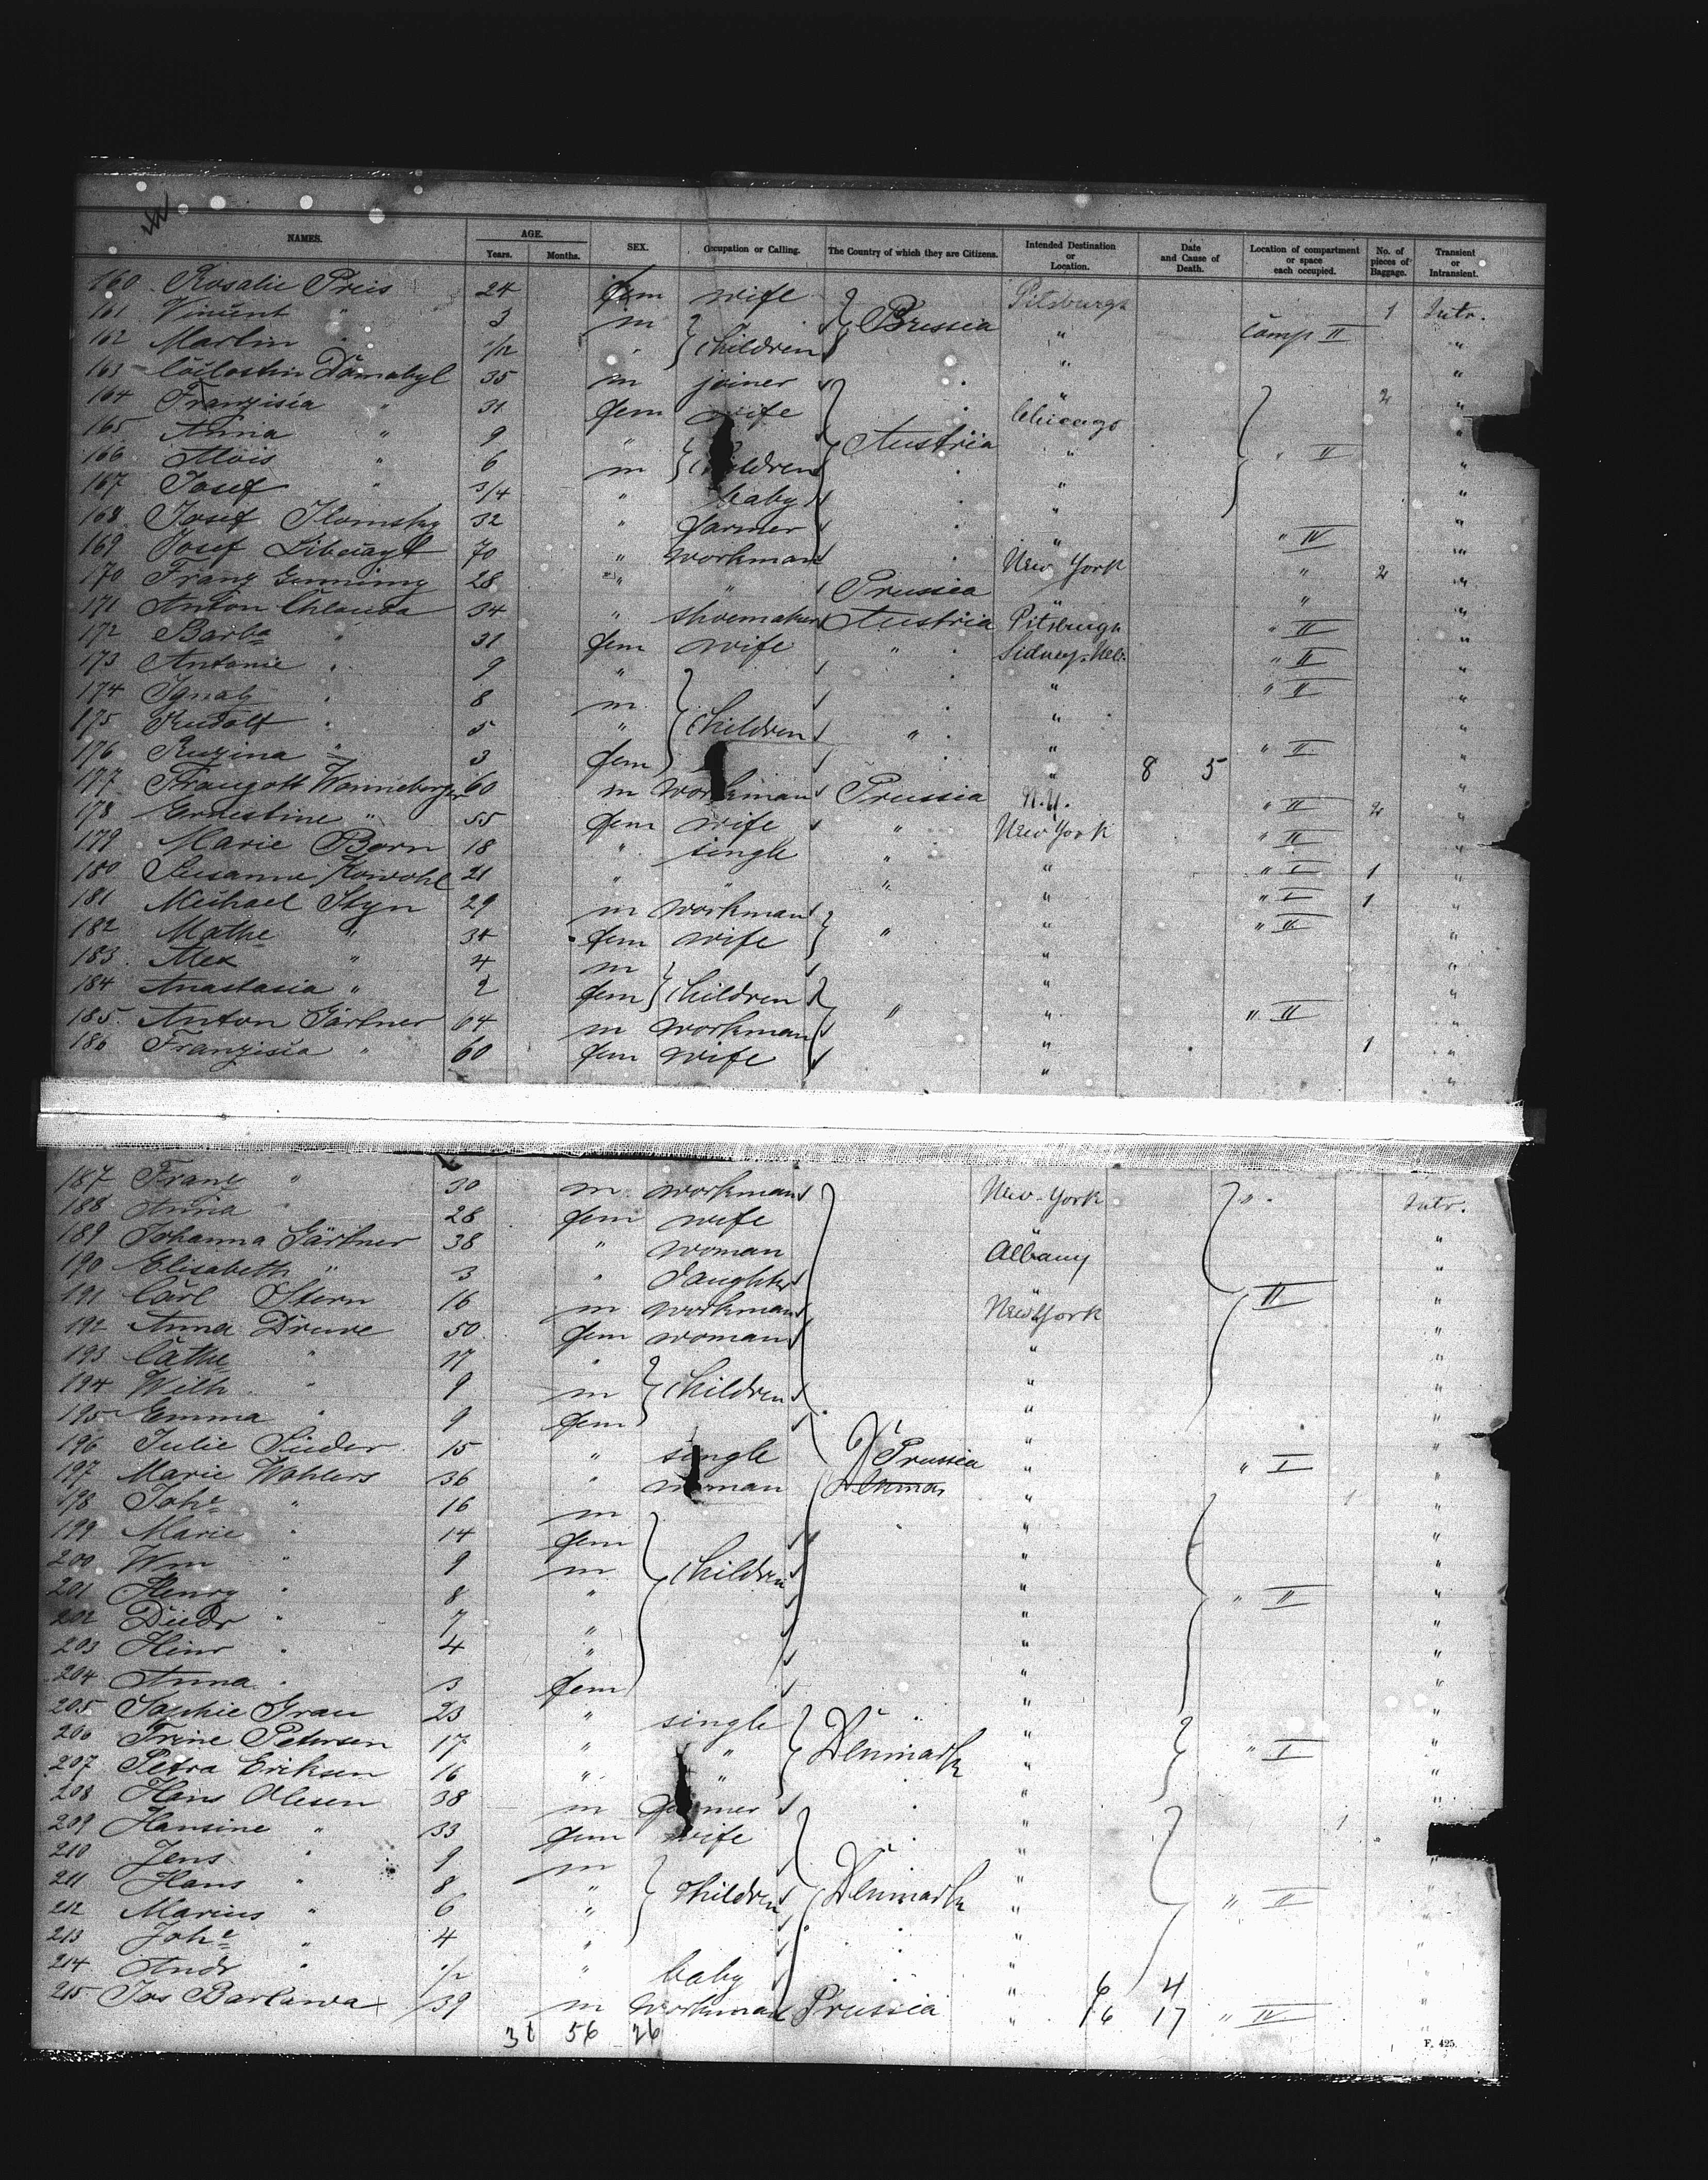 NAMES. AGE. Years. Months. SEX. Occupation or Calling. The Country of which they are Citizens. Intended Destination or Location. Date and Cause of Death. Location of compartment or space each occupied. No. of pieces of Baggage. Transient or Intransient.
160 Rosalie Preis 24 fem wife Pitsburgh 1 Intr.
161 Vincent " 3 m Prussia " Comp II "
162 Martin " /12 " children " "
163 Damabyl 35 m joiner 2 "
164 Franzisca " 31 fem wife Chicago "
165 Anna " 9 " Austria " " II "
166 Alois " 6 m children " "
167 Josef " 3/4 " baby " "
168 Josef 32 " farmer " " IV "
169 Josef 70 " workman New York " 2 "
170 Franz 28 " " Prussia " " "
171 Anton 34 " shoemaker Austria Pitsburgh " II "
172 Barba " 31 fem wife " Sidney. Neb. " II "
173 Antonie " 9 " " " II "
174 Ignatz " 8 m " "
175 Rudolf " 5 " children " " " II "
176 Ruzina " 3 fem " 8 5 "
177 Traugott Wanneberger 60 m workman Prussia N.Y. " II 2 "
178 Ernestine " 55 fem wife " New York " II "
179 Marie Born 18 " single " " " I 1 "
180 Susanna Kowohl 21 " " " " " I 1 "
181 Michael Styn 29 m workman " " II "
182 Mathe " 34 fem wife " " "
183 Alex " 4 m " "
184 Anastasia " 2 fem children " " " II "
185 Anton Gärtner 64 m workman " 1 "
186 Franzisca " 60 fem wife " "
187 Franz " 30 m workman New-York " Intr.
188 Anna " 28 fem wife " "
189 Johanna Gärtner 38 " woman Albany "
190 Elisabeth " 3 " daughter " II "
191 Carl Stern 16 m workman New York "
192 Anna Druve 50 fem woman " "
193 Cathe " 17 " " "
194 Wilh " 9 m children " "
195 Emma " 9 fem " "
196 Julie 15 " single Prussia " " I "
197 Marie Wahlers 36 " woman Denmar " 1 "
198 Johe " 16 m " "
199 Marie " 14 fem " "
200 Wm " 9 m children " "
201 Henry " 8 " " " II "
202 Diedr " 7 " " "
203 Hinr " 4 " " "
204 Anna " 3 fem " "
205 Sophie Grau 23 " single " "
206 Trine Petersen 17 " " Denmark " " I "
207 Petra Eriksen 16 " " " "
208 Hans Olesen 38 m farmer " "
209 Hansine " 33 fem wife " 1 "
210 Jens " 9 m " "
211 Hans " 8 " children Denmark " " II "
212 Marius " 6 " " "
213 Johe " 4 " " "
214 Andr " /12 " baby " 6 4 "
215 Jos Barlawa 39 m workman Prussia " 16 17 " IV "
56 26
F. 425.